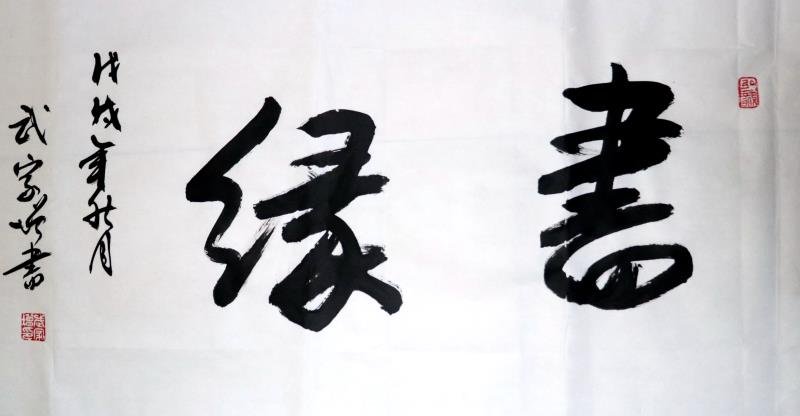 書緣
戊戌年秋月
武家增書